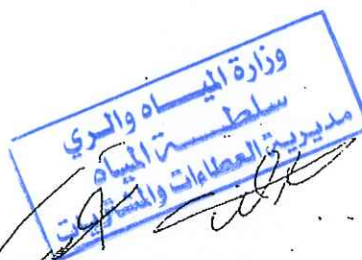 وزارة المياه والري
سلطة المياه
مديرية العطاءات والمشتريات